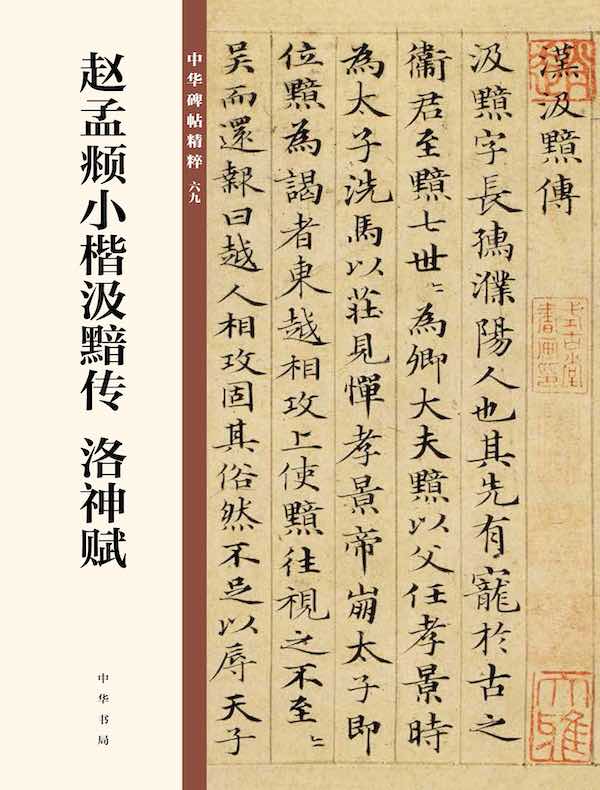 赵孟頫小楷汲黯传 洛神赋
中华书局
中华碑帖精粹 六九
漢汲黯傳
汲黯字長孺濮陽人也其先有寵於古之
衛君至黯七世〻為卿大夫黯以父任孝景時
為太子洗馬以莊見憚孝景帝崩太子即
位黯為謁者東越相攻上使黯往視之不至〻
吳而還報曰越人相攻固其俗然不足以辱天子
式古堂
書画印
大雅